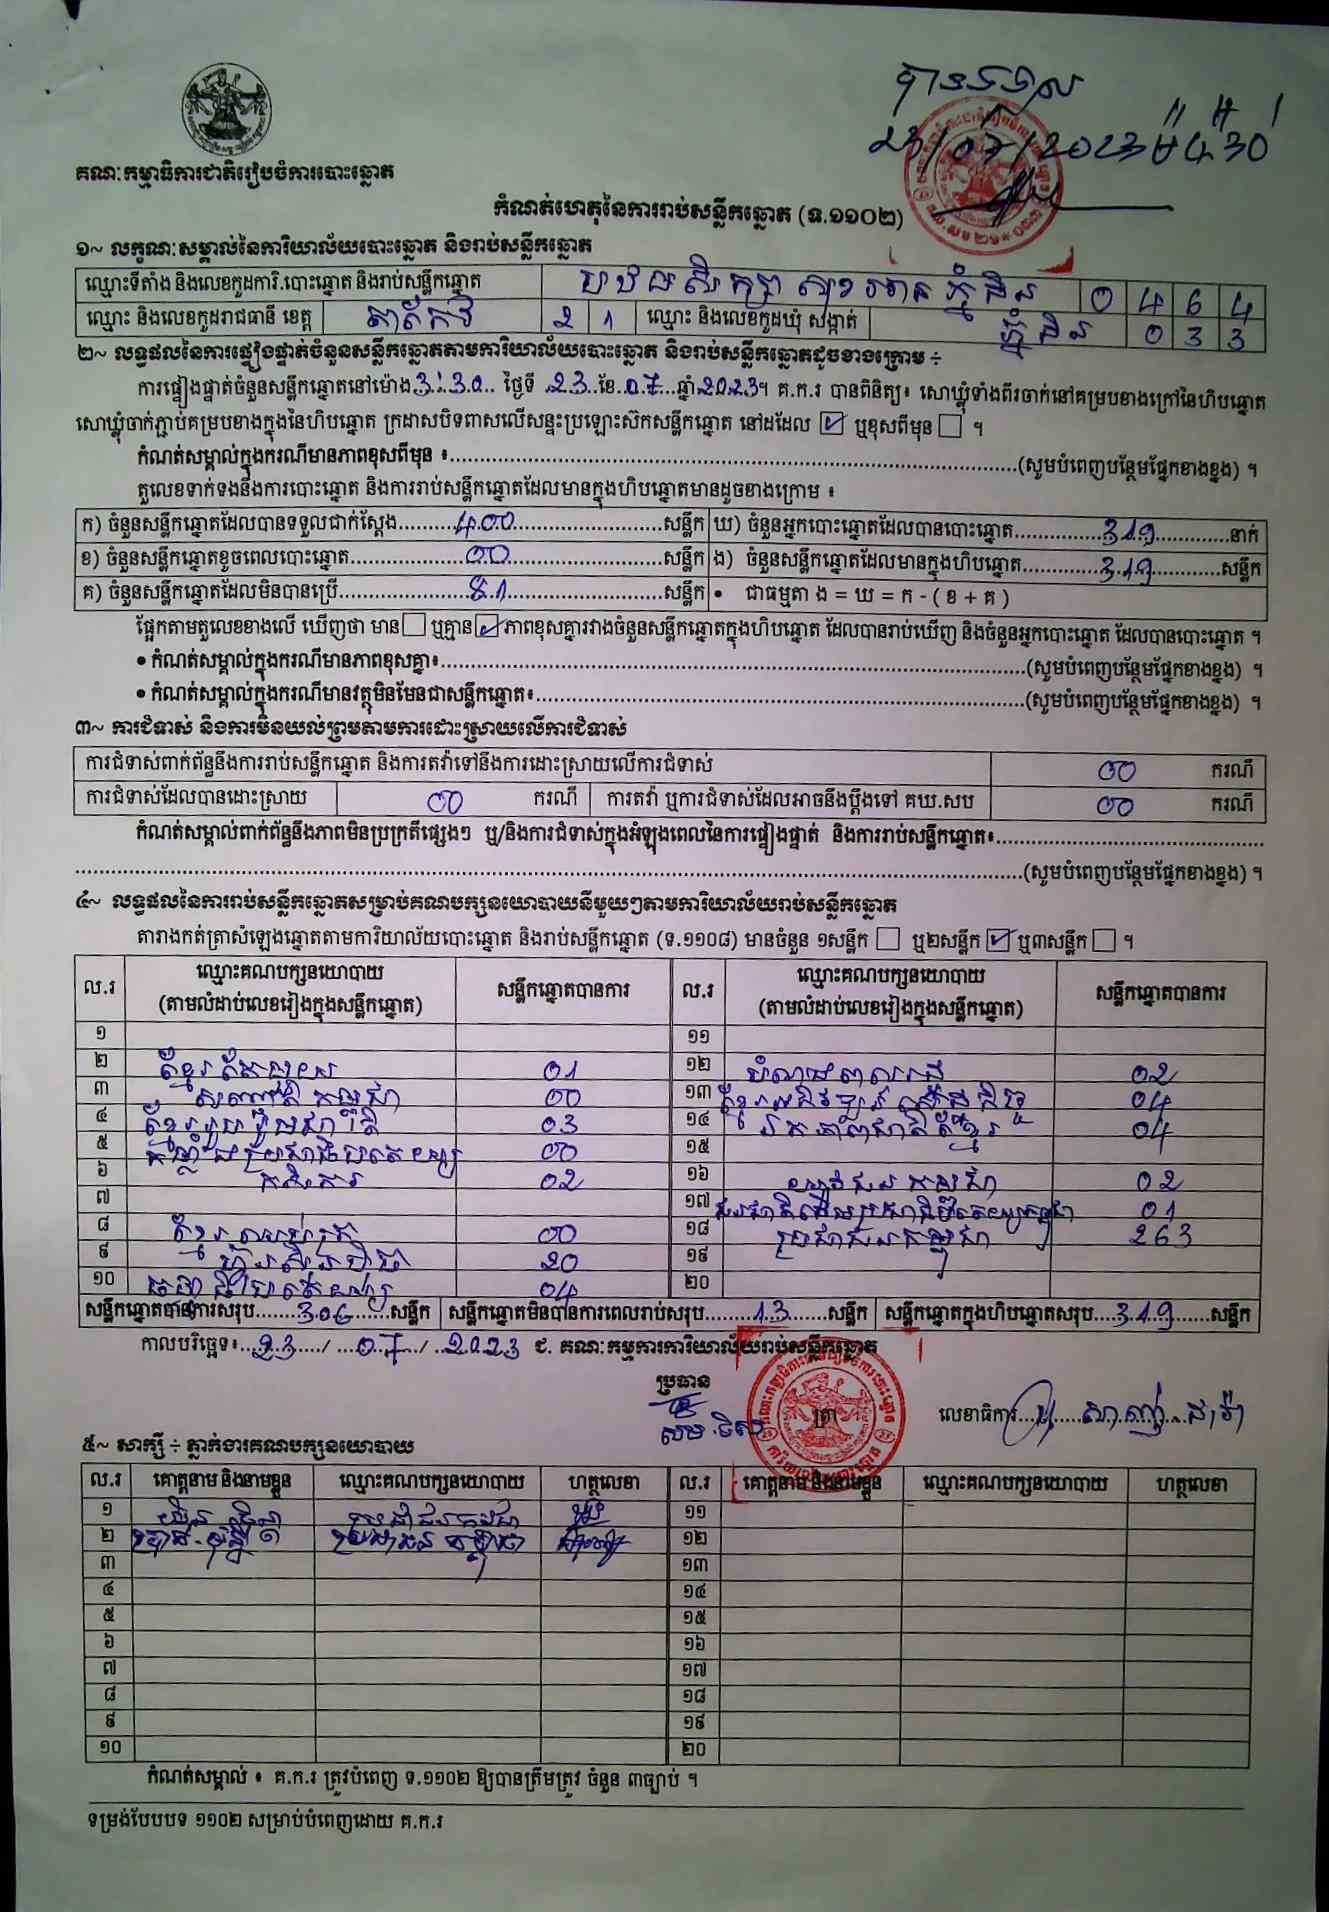 បានទទួល
23/07/2023 ម៉ 4 30
គណៈកម្មាធិការជាតិរៀបចំការបោះឆ្នោត
កំណត់ហេតុនៃការរាប់សន្លឹកឆ្នោត (ទ.១១០២)
១~ លក្ខណៈសម្គាល់នៃការិយាល័យបោះឆ្នោត និងរាប់សន្លឹកឆ្នោត
ឈ្មោះទីតាំង និងលេខកូដការិ.បោះឆ្នោត និងរាប់សន្លឹកឆ្នោត 0 4 6 4
ឈ្មោះ និងលេខកូដរាជធានី ខេត្ត តាកែវ 2 1 ឈ្មោះ និងលេខកូដឃុំ សង្កាត់ 0 3 3
២~ លទ្ធផលនៃការផ្ទៀងផ្ទាត់ចំនួនសន្លឹកឆ្នោតតាមការិយាល័យបោះឆ្នោត និងរាប់សន្លឹកឆ្នោតដូចខាងក្រោម ÷
ការផ្ទៀងផ្ទាត់ចំនួនសន្លឹកឆ្នោតនៅម៉ោង 3:30 ថ្ងៃទី 23 ខែ 07 ឆ្នាំ 2023។ គ.ក.រ បានពិនិត្យ៖ សោឃ្លុំទាំងពីរចាក់នៅគម្របខាងក្រៅនៃហិបឆ្នោត
សោឃ្លុំចាក់ភ្ជាប់គម្របខាងក្នុងនៃហិបឆ្នោត ក្រដាសបិទពាសលើសន្ទះប្រឡោះស៊កសន្លឹកឆ្នោត នៅដដែល ☑ ឬខុសពីមុន ☐ ។
កំណត់សម្គាល់ក្នុងករណីមានភាពខុសពីមុន ៖ (សូមបំពេញបន្ថែមផ្នែកខាងខ្នង) ។
តួលេខទាក់ទងនឹងការបោះឆ្នោត និងការរាប់សន្លឹកឆ្នោតដែលមានក្នុងហិបឆ្នោតមានដូចខាងក្រោម ៖
ក) ចំនួនសន្លឹកឆ្នោតដែលបានទទួលជាក់ស្តែង 400 សន្លឹក ឃ) ចំនួនអ្នកបោះឆ្នោតដែលបានបោះឆ្នោត 319 នាក់
ខ) ចំនួនសន្លឹកឆ្នោតខូចពេលបោះឆ្នោត 00 សន្លឹក ង) ចំនួនសន្លឹកឆ្នោតដែលមានក្នុងហិបឆ្នោត 319 សន្លឹក
គ) ចំនួនសន្លឹកឆ្នោតដែលមិនបានប្រើ 81 សន្លឹក • ជាធម្មតា ង = ឃ = ក - ( ខ + គ )
ផ្អែកតាមតួលេខខាងលើ ឃើញថា មាន ☐ ឬគ្មាន ☑ ភាពខុសគ្នារវាងចំនួនសន្លឹកឆ្នោតក្នុងហិបឆ្នោត ដែលបានរាប់ឃើញ និងចំនួនអ្នកបោះឆ្នោត ដែលបានបោះឆ្នោត ។
• កំណត់សម្គាល់ក្នុងករណីមានភាពខុសគ្នា៖ (សូមបំពេញបន្ថែមផ្នែកខាងខ្នង) ។
• កំណត់សម្គាល់ក្នុងករណីមានវត្ថុមិនមែនជាសន្លឹកឆ្នោត៖ (សូមបំពេញបន្ថែមផ្នែកខាងខ្នង) ។
៣~ ការជំទាស់ និងការមិនយល់ព្រមតាមការដោះស្រាយលើការជំទាស់
ការជំទាស់ពាក់ព័ន្ធនឹងការរាប់សន្លឹកឆ្នោត និងការតវ៉ាទៅនឹងការដោះស្រាយលើការជំទាស់ 00 ករណី
ការជំទាស់ដែលបានដោះស្រាយ 00 ករណី ការតវ៉ា ឬការជំទាស់ដែលអាចនឹងប្តឹងទៅ គឃ.សប 00 ករណី
កំណត់សម្គាល់ពាក់ព័ន្ធនឹងភាពមិនប្រក្រតីផ្សេងៗ ឬ/និងការជំទាស់ក្នុងអំឡុងពេលនៃការផ្ទៀងផ្ទាត់ និងការរាប់សន្លឹកឆ្នោត៖
(សូមបំពេញបន្ថែមផ្នែកខាងខ្នង) ។
៤~ លទ្ធផលនៃការរាប់សន្លឹកឆ្នោតសម្រាប់គណបក្សនយោបាយនីមួយៗតាមការិយាល័យរាប់សន្លឹកឆ្នោត
តារាងកត់ត្រាសំឡេងឆ្នោតតាមការិយាល័យបោះឆ្នោត និងរាប់សន្លឹកឆ្នោត (ទ.១១០៨) មានចំនួន ១សន្លឹក ☐ ឬ២សន្លឹក ☑ ឬ៣សន្លឹក ☐ ។
ល.រ ឈ្មោះគណបក្សនយោបាយ (តាមលំដាប់លេខរៀងក្នុងសន្លឹកឆ្នោត) សន្លឹកឆ្នោតបានការ ល.រ ឈ្មោះគណបក្សនយោបាយ (តាមលំដាប់លេខរៀងក្នុងសន្លឹកឆ្នោត) សន្លឹកឆ្នោតបានការ
១ ១១
២ 01 ១២ 02
៣ 00 ១៣ 04
៤ ខ្មែររួបរួមជាតិ 03 ១៤ 04
៥ 00 ១៥
៦ កសិករ 02 ១៦ យុវជនកម្ពុជា 02
៧ ១៧ 01
៨ 00 ១៨ ប្រជាជនកម្ពុជា 263
៩ ហ៊្វុនស៊ិនប៉ិច 20 ១៩
១០ 04 ២០
សន្លឹកឆ្នោតបានការសរុប 306 សន្លឹក សន្លឹកឆ្នោតមិនបានការពេលរាប់សរុប 13 សន្លឹក សន្លឹកឆ្នោតក្នុងហិបឆ្នោតសរុប 319 សន្លឹក
កាលបរិច្ឆេទ៖ 23 / 07 / 2023 ជ. គណៈកម្មការការិយាល័យរាប់សន្លឹកឆ្នោត
ប្រធាន ត្រា លេខាធិការ
៥~ សាក្សី ÷ ភ្នាក់ងារគណបក្សនយោបាយ
ល.រ គោត្តនាម និងនាមខ្លួន ឈ្មោះគណបក្សនយោបាយ ហត្ថលេខា ល.រ គោត្តនាម និងនាមខ្លួន ឈ្មោះគណបក្សនយោបាយ ហត្ថលេខា
១ ប្រជាជនកម្ពុជា ១១
២ ប្រជាជនកម្ពុជា ១២
៣ ១៣
៤ ១៤
៥ ១៥
៦ ១៦
៧ ១៧
៨ ១៨
៩ ១៩
១០ ២០
កំណត់សម្គាល់ ៖ គ.ក.រ ត្រូវបំពេញ ទ.១១០២ ឱ្យបានត្រឹមត្រូវ ចំនួន ៣ច្បាប់ ។
ទម្រង់បែបបទ ១១០២ សម្រាប់បំពេញដោយ គ.ក.រ